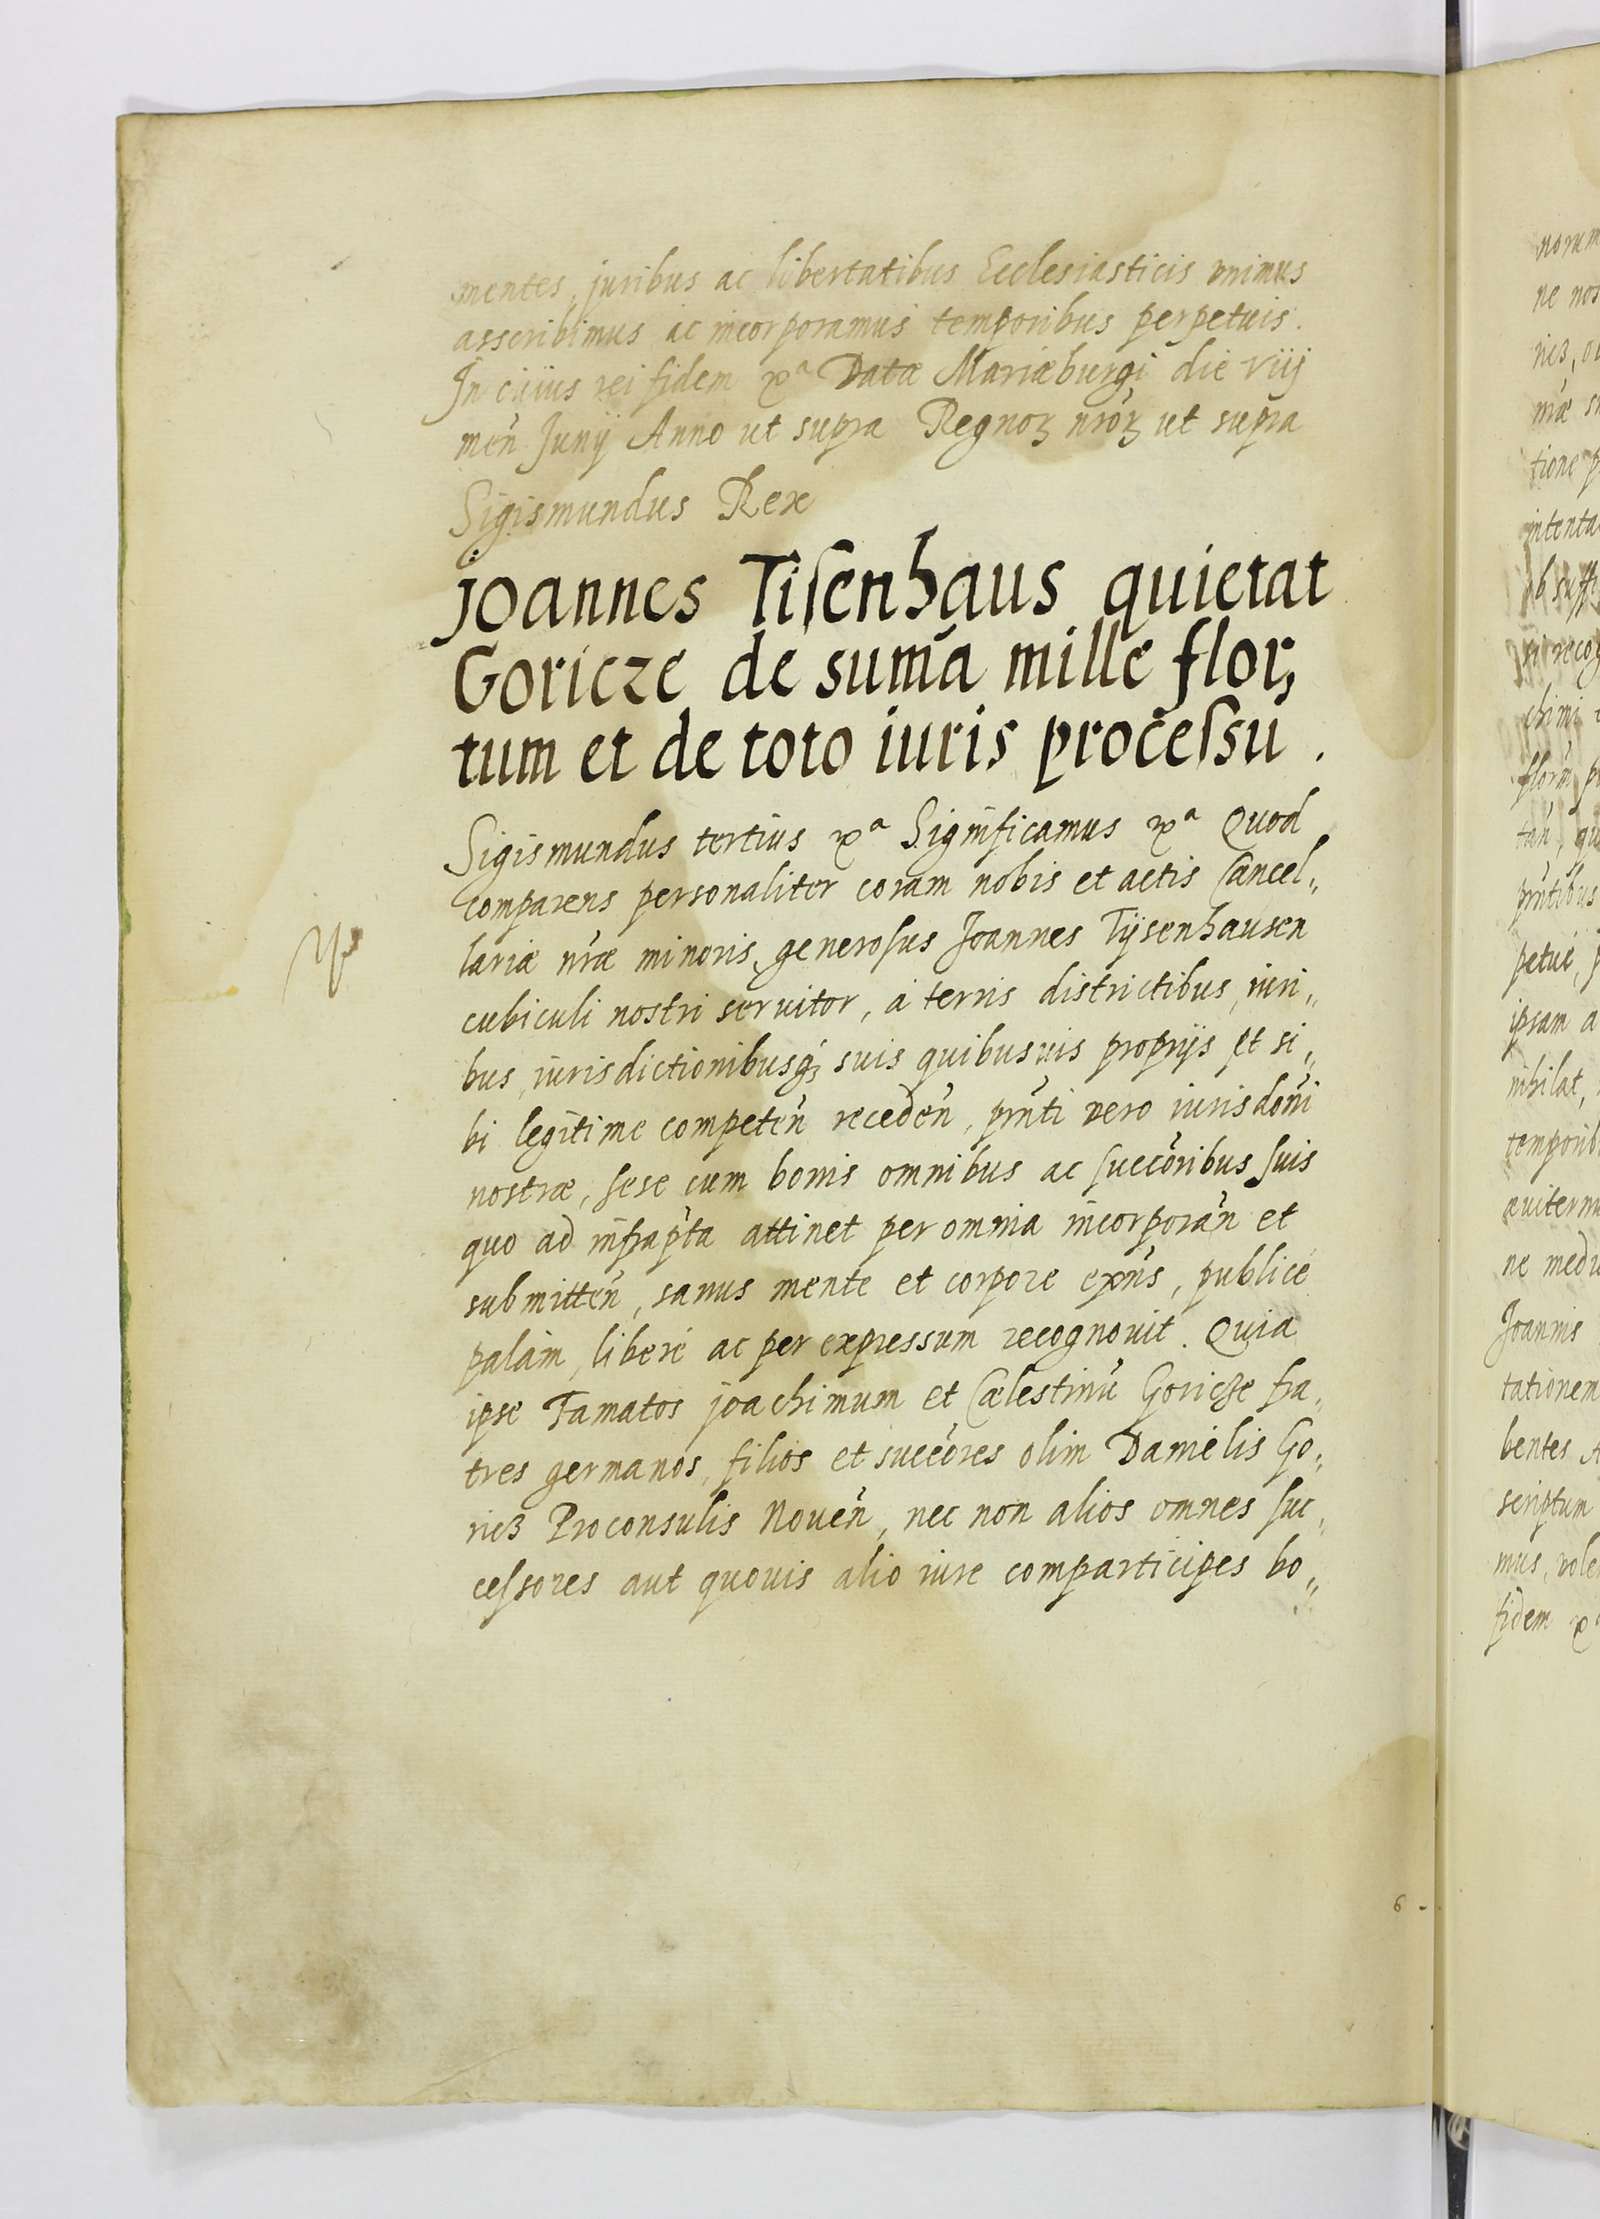 mentes, juribus ac libertatibus Ecclesiasticis vnimus
asscribimus ac incorporamus temporibus perpetuis.
In cuius rei fidem xª Datæ Mariæburgi die viij
meñ Junij Anno ut supra Regnoꝝ nr̃oꝝ ut supra
Sigismundus Rex
Joannes Tiſenhaus quietat
Goricze de sum̃a mille flor,
tum et de toto iuris proceſsu.
Sigismundus tertius xª Significamus xª Quod
comparens personaliter coram nobis et actis Cancel„
lariæ nr̃æ minoris, generoſus Joannes Tÿsenhausen
cubiculi nostri seruitor, á terris districtibus, iuri„
bus, iurisdictionibusqꝫ suis quibusuis proprijs et si„
bi legitime competeñ recedeñ, pr̃nti vero iurisdoñi
nostræ, ſese cum bonis omnibus ac ſuccoribus ſuis
quo ad infrap̃ta attinet per omnia incorporañ et
submitteñ, sanus mente et corpore exñs, publicé
palám, liberé ac per expressum recognouit. Quia
ipse Famatos Joachimum et Cælestinũ Goricze fra„
tres germanos, filios et succores olim Daniélis Go„
ricz Proconsulis Noueñ, nec non alios omnes ſuc„
ceſsores aut quouis alio iure comparticipes bo„
6
norum
ne nos
nr̃æ
tione
intenta
chimi
petué,
ipsam a
nihilat,
temporib
ne medi
Joannis
tationem
bentes
scriptum
mus, vole
fidem xª